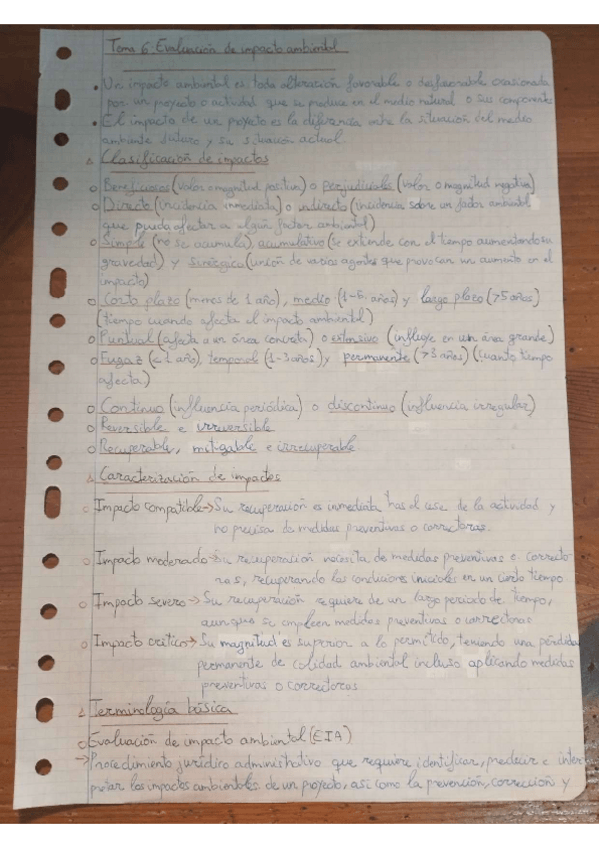 Tema 6: Evaluación de impacto ambiental
• Un impacto ambiental es toda alteración favorable o desfavorable ocasionada
por un proyecto o actividad que se produce en el medio natural o sus componentes
• El impacto de un proyecto es la diferencia entre la situación del medio
ambiente futuro y su situación actual.
Clasificación de impactos
o Beneficiosos (valor o magnitud positiva) o perjudiciales (valor o magnitud negativa)
o Directo (incidencia inmediata) o indirecto (incidencia sobre un factor ambiental
que pueda afectar a algún factor ambiental)
o Simple (no se acumula), acumulativo (se extiende con el tiempo aumentando su
gravedad) y sinérgico (unión de varios agentes que provocan un aumento en el
impacto)
o Corto plazo (menos de 1 año), medio (1-5 años) y largo plazo (>5 años)
(tiempo cuando afecta el impacto ambiental)
o Puntual (afecta a un área concreta) o extensivo (influye en un área grande)
o Fugaz (<1 año), temporal (1-3 años) y permanente (>3 años) (cuanto tiempo
afecta)
o Continuo (influencia periódica) o discontinuo (influencia irregular)
o Reversible e irreversible
o Recuperable, mitigable e irrecuperable
Caracterización de impactos
o Impacto compatible → Su recuperación es inmediata tras el cese de la actividad y
no precisa de medidas preventivas o correctoras.
o Impacto moderado → Su recuperación necesita de medidas preventivas e correcto-
ras, recuperando las condiciones iniciales en un cierto tiempo
o Impacto severo → Su recuperación requiere de un largo periodo de tiempo,
aunque se empleen medidas preventivas o correctoras
o Impacto crítico → Su magnitud es superior a lo permitido, teniendo una pérdida
permanente de calidad ambiental incluso aplicando medidas
preventivas o correctoras
Terminología básica
o Evaluación de impacto ambiental (EIA)
→ Procedimiento jurídico administrativo que requiere identificar, predecir e inter
pretar los impactos ambientales de un proyecto, así como la prevención, corrección y